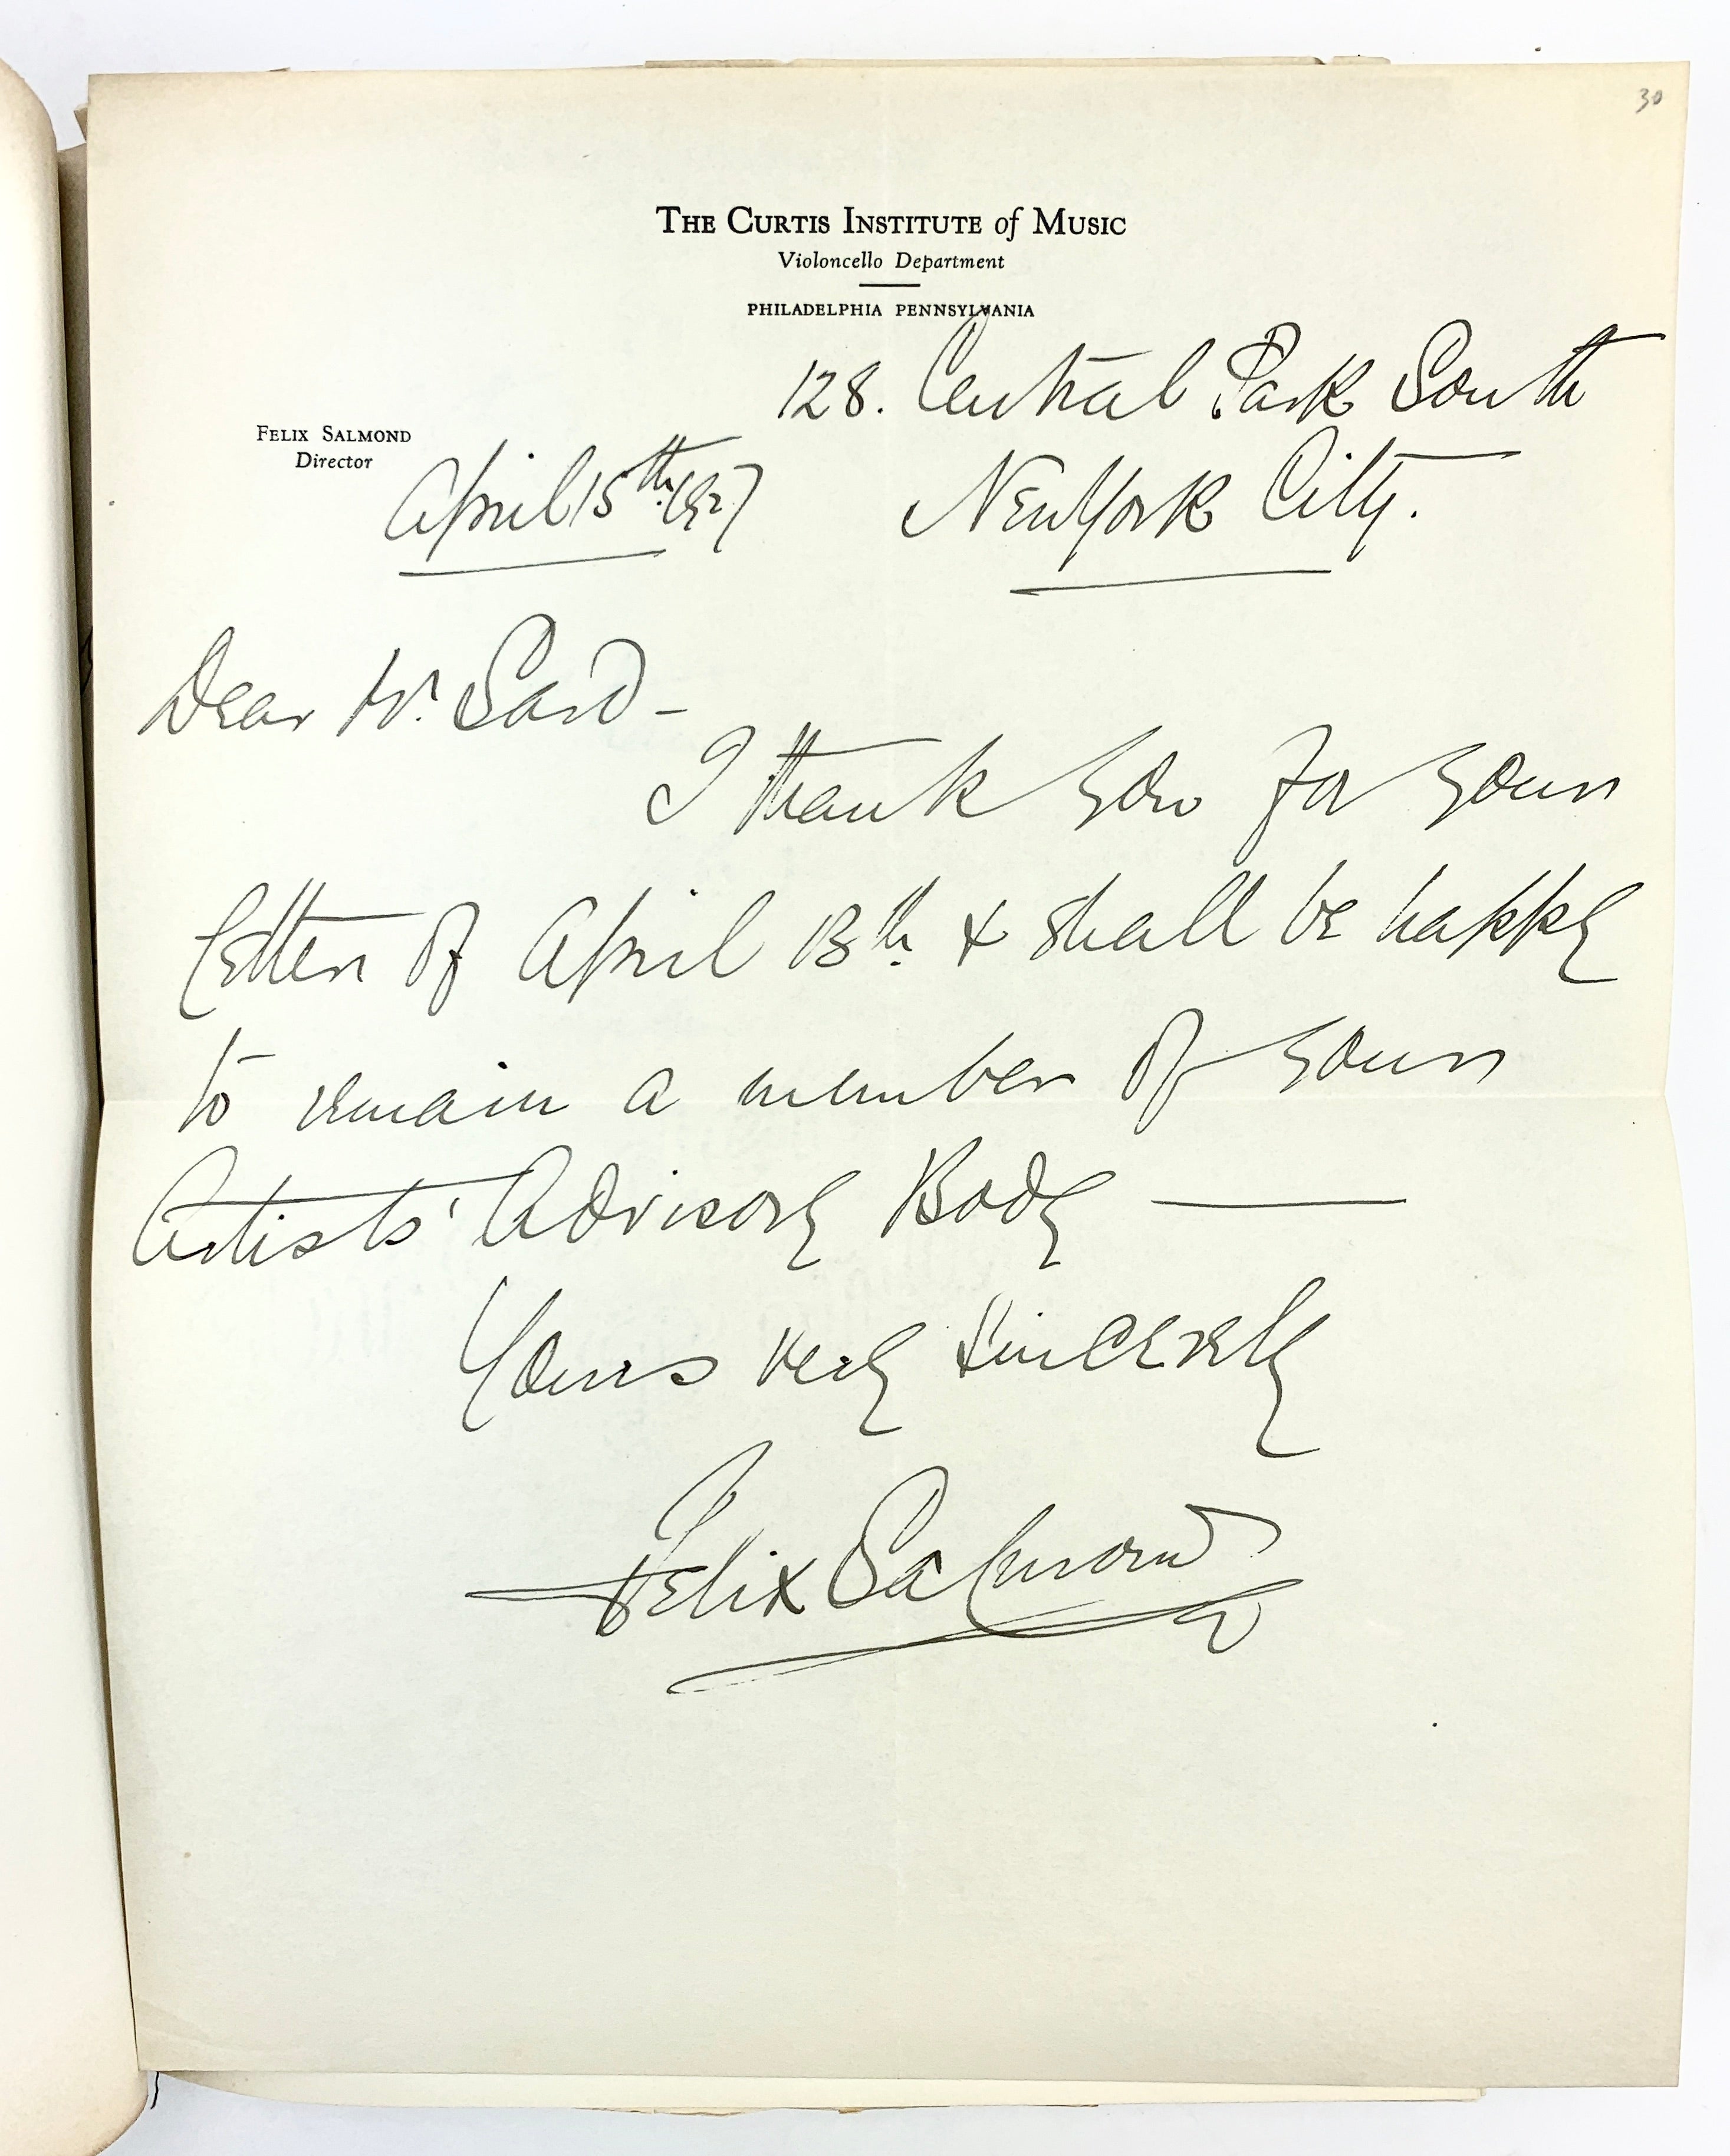 30
THE CURTIS INSTITUTE of MUSIC
Violoncello Department
PHILADELPHIA PENNSYLVANIA
128. Central Park South
FELIX SALMOND
Director
April 15th. 1927
New York City.
Dear Mr. Sard -
I thank you for your
letter of April 13th. & shall be happy
to remain a member of your
Artists' Advisory Body —
Yours very sincerely
Felix Salmond